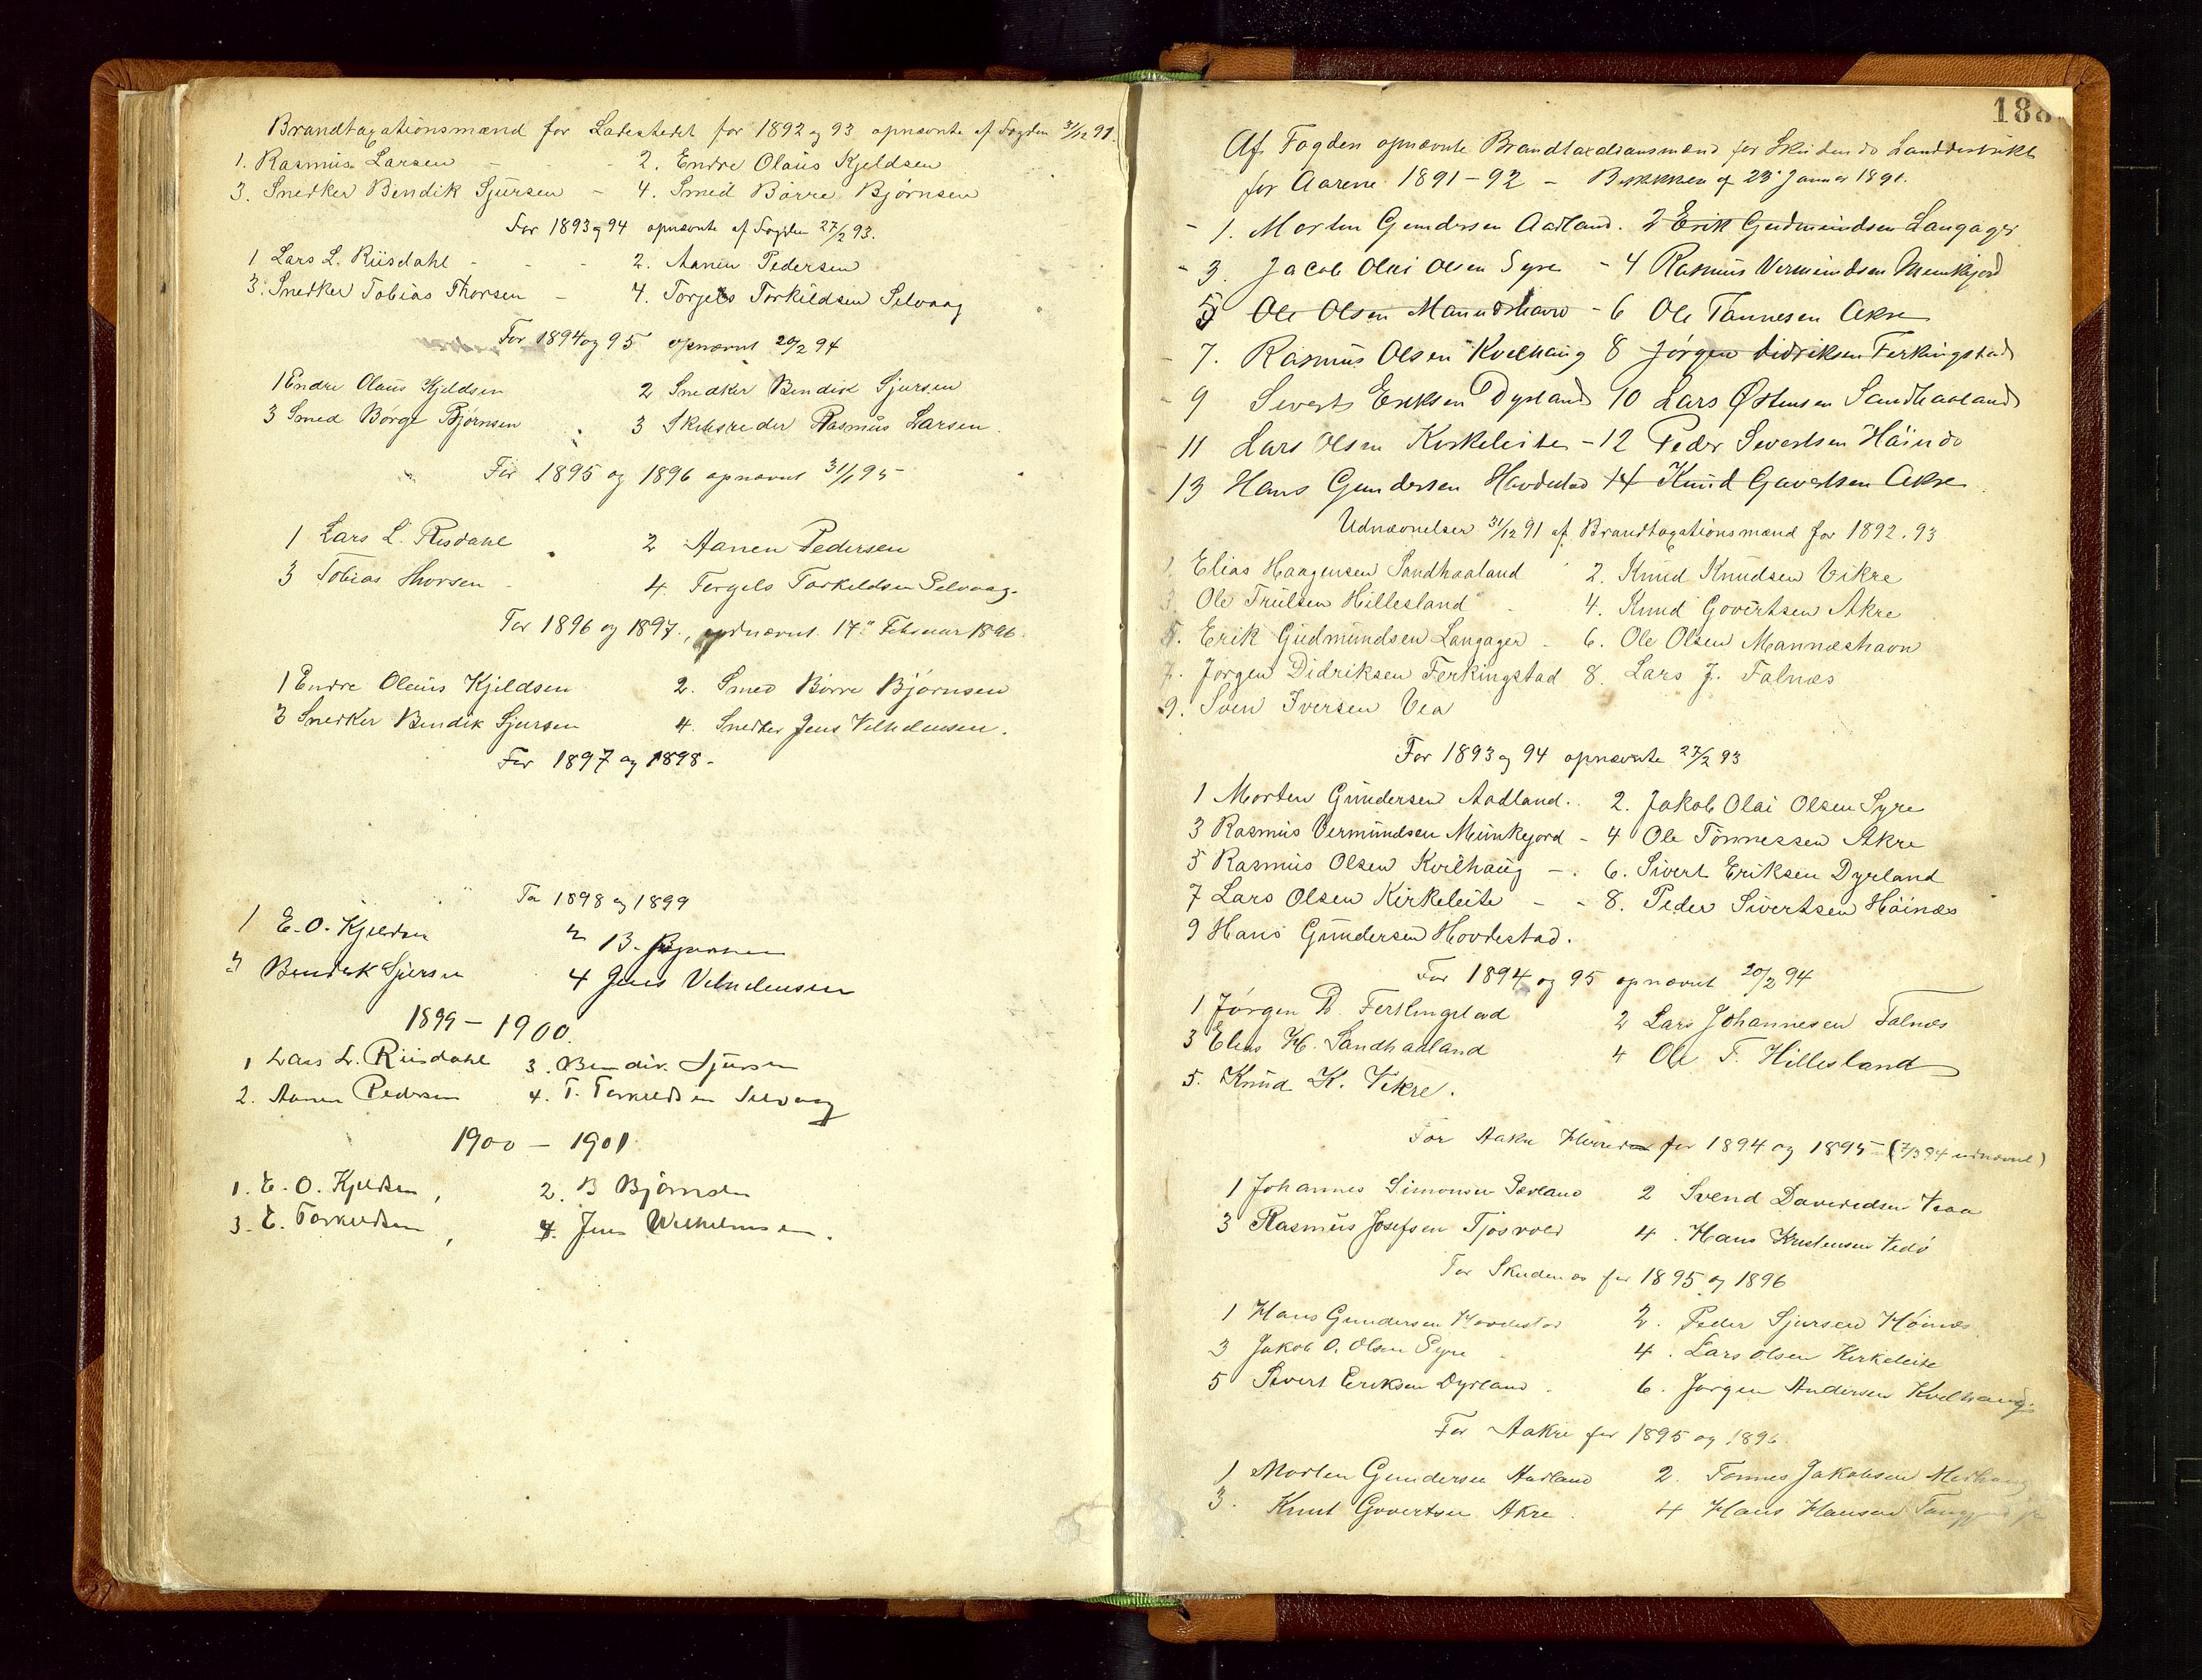 Brandtaxationsmænd for Ladestedet for 1892 og 93 opnævnte af Fogden 31/12 91.
1. Rasmus Larsen - - 2. Endre Olaus Kjeldsen
3. Snedker Bendik Sjursen - 4. Smed Børre Bjørnsen
For 1893 og 94 opnævnte af Fogden 27/2 93.
1 Lars L. Riisdahl - - - 2. Aanen Pedersen
3. Snedker Tobias Thorsen - 4. Torgels Torkildsen Selvaag
For 1894 og 95 opnævnt 20/2 94
1 Endre Olaus Kjeldsen 2 Snedker Bendik Sjursen
3 Smed Børge Bjørnsen 3 Skibsreder Rasmus Larsen.
For 1895 og 1896 opnævnt 31/1 95
1 Lars L. Risdahl 2 Aanen Pedersen
3 Tobias Thorsen - 4. Torgels Torkeldsen Selvaag.
For 1896 og 1897, opnævnt 17de Februar 1896.
1 Endre Olaus Kjeldsen 2. Smed Børre Bjørnsen
3 Snedker Bendik Sjursen 4. Snedker Jens Vilhelmsen.
For 1897 og 1898.
For 1898 og 1899
1 E. O. Kjeldsen 2 B. Bjørnsen
3 Bendik Sjursen 4 Jens Vilhelmsen
1899 - 1900.
1 Lars L. Riisdahl 3. Bendik Sjursen
2. Aanen Pedersen 4. T. Torkeldsen Selvaag
1900 - 1901
1. E. O. Kjeldsen, 2. B Bjørnsen
3. T. Torkeldsen, 4. Jens Wilhelmsen.
188
Af Fogden opnævnte Brandtaxationsmænd for Skudenæs Landdistrikt
for Aarene 1891-92 - 23 Januar 1891.
- 1. Morten Gundersen Aadland. 2 Erik Gudmundsen Langager
- 3. Jacob Olai Olsen Syre - 4 Rasmus Vermundsen Munkejord
5 Ole Olsen Mannæshavn - 6 Ole Tønnesen Akre
- 7. Rasmus Olsen Kvelhaug 8 Jørgen Didriksen Ferkingstad
- 9 Sivert Eriksen Dyrland 10 Lars Østensen Sandhaaland
- 11 Lars Olsen Kirkeleite - 12 Peder Sivertsen Høinæs
- 13 Hans Gundersen Hovdestad 14 Knud Govertsen Akre
Udnævnelser 31/12 91 af Brandtaxationsmænd for 1892.93
1. Elias Haagensen Sandhaaland 2. Knud Knudsen Vikre
3. Ole Trulsen Hillesland - 4. Knud Govertsen Akre
5. Erik Gudmundsen Langager - 6. Ole Olsen Mannæshavn
7. Jørgen Didriksen Ferkingstad 8. Lars J. Falnæs
9. Sven Iversen Vea
For 1893 og 94 opnævnte 27/2 93
1 Morten Gundersen Aadland. 2. Jakob Olai Olsen Syre
3 Rasmus Vermundsen Munkejord - 4 Ole Tønnessen Akre
5 Rasmus Olsen Kvilhaug - 6. Sivert Eriksen Dyrland
7 Lars Olsen Kirkeleite - - 8. Peder Sivertsen Høinæs
9 Hans Gundersen Hovdestad.
For 1894 og 95 opnævnt 20/2 94
1 Jørgen D. Ferkingstad 2 Lars Johannesen Falnæs
3 Elias H. Sandhaaland 4 Ole T. Hillesland
5. Knud K. Vikre.
For Aakre Herred for 1894 og 1895 - (7/3 94 udnævnt)
1 Johannes Simonsen Sævland 2 Svend Davidsen Veaa
3 Rasmus Josefsen Tjøsvold 4. Hans Kristensen Vedø
For Skudenæs for 1895 og 1896
1 Hans Gundersen Hovdestad 2. Peder Sjursen Høinæs
3 Jakob O. Olsen Syre 4. Lars Olsen Kirkeleite
5 Sivert Eriksen Dyrland. 6. Jørgen Andersen Kvelhaug.
For Aakre for 1895 og 1896.
1 Morten Gundersen Aadland 2. Tønnes Jakobsen
3. Knut Govertsen Akre. 4 Hans Hansen